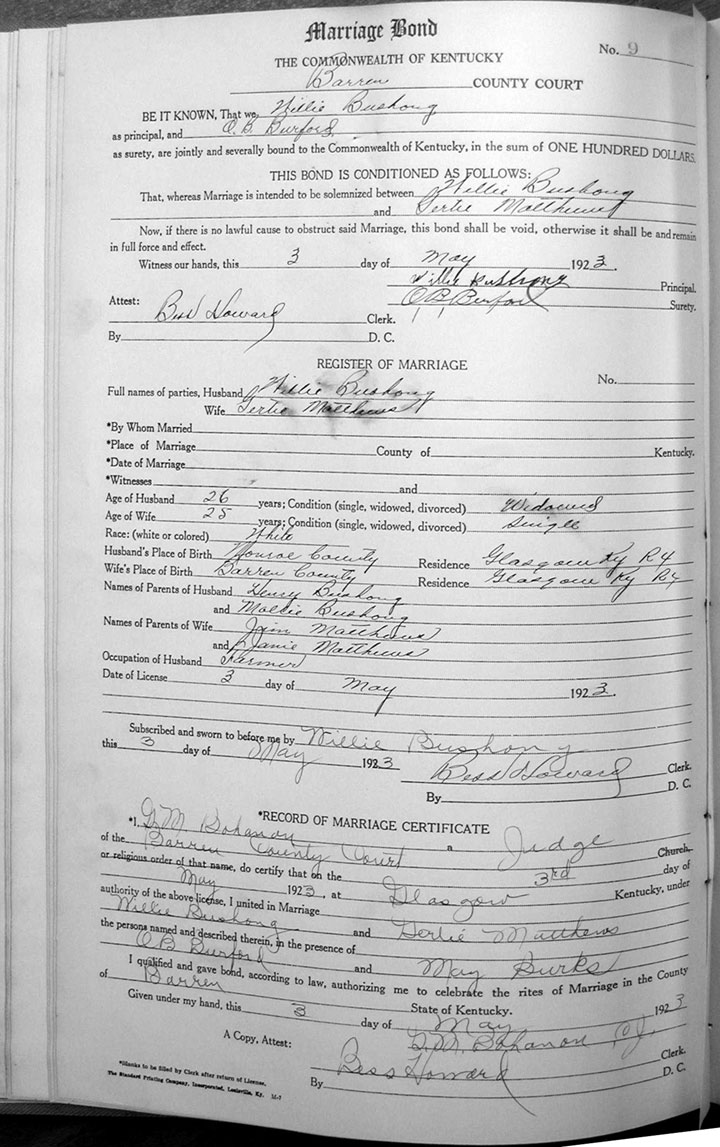 Marriage Bond
No. 9
THE COMMONWEALTH OF KENTUCKY
Barren COUNTY COURT
BE IT KNOWN, That we, Willie Bushong
as principal, and O.B. Burford,
as surety, are jointly and severally bound to the Commonwealth of Kentucky, in the sum of ONE HUNDRED DOLLARS.
THIS BOND IS CONDITIONED AS FOLLOWS:
That, whereas Marriage is intended to be solemnized between Willie Bushong
and Gertie Matthews
Now, if there is no lawful cause to obstruct said Marriage, this bond shall be void, otherwise it shall be and remain
in full force and effect.
Witness our hands, this 3 day of May 1923.
Willie Bushong Principal.
O B Burford Surety.
Attest:
Bess Howard Clerk.
By D. C.
REGISTER OF MARRIAGE
No.
Full names of parties, Husband Willie Bushong
Wife Gertie Matthews
*By Whom Married
*Place of Marriage County of Kentucky.
*Date of Marriage
*Witnesses and
Age of Husband 26 years; Condition (single, widowed, divorced) Widowed
Age of Wife 25 years; Condition (single, widowed, divorced) Single
Race: (white or colored) White
Husband's Place of Birth Monroe County Residence Glasgow Ky R4
Wife's Place of Birth Barren County Residence Glasgow Ky R4
Names of Parents of Husband Henry Bushong
and Mollie Bushong
Names of Parents of Wife Jim Matthews
and Janie Matthews
Occupation of Husband Farmer
Date of License 3 day of May 1923.
Subscribed and sworn to before me by Willie Bushong
this 3 day of May 1923
Bess Howard Clerk.
By D. C.
*RECORD OF MARRIAGE CERTIFICATE
*I, G M Bohanon a Judge
of the Barren County Court Church,
or religious order of that name, do certify that on the 3rd day of
May 1923, at Glasgow Kentucky, under
authority of the above license, I united in Marriage
Willie Bushong and Gertie Matthews
the persons named and described therein, in the presence of
O B Burford and May Burks
I qualified and gave bond, according to law, authorizing me to celebrate the rites of Marriage in the County
of Barren State of Kentucky.
Given under my hand, this 3 day of May 1923
G.M. Bohanon C.J.
A Copy, Attest: Bess Howard Clerk.
By D. C.
*Blanks to be filled by Clerk after return of License.
The Standard Printing Company, Incorporated, Louisville, Ky. M-7